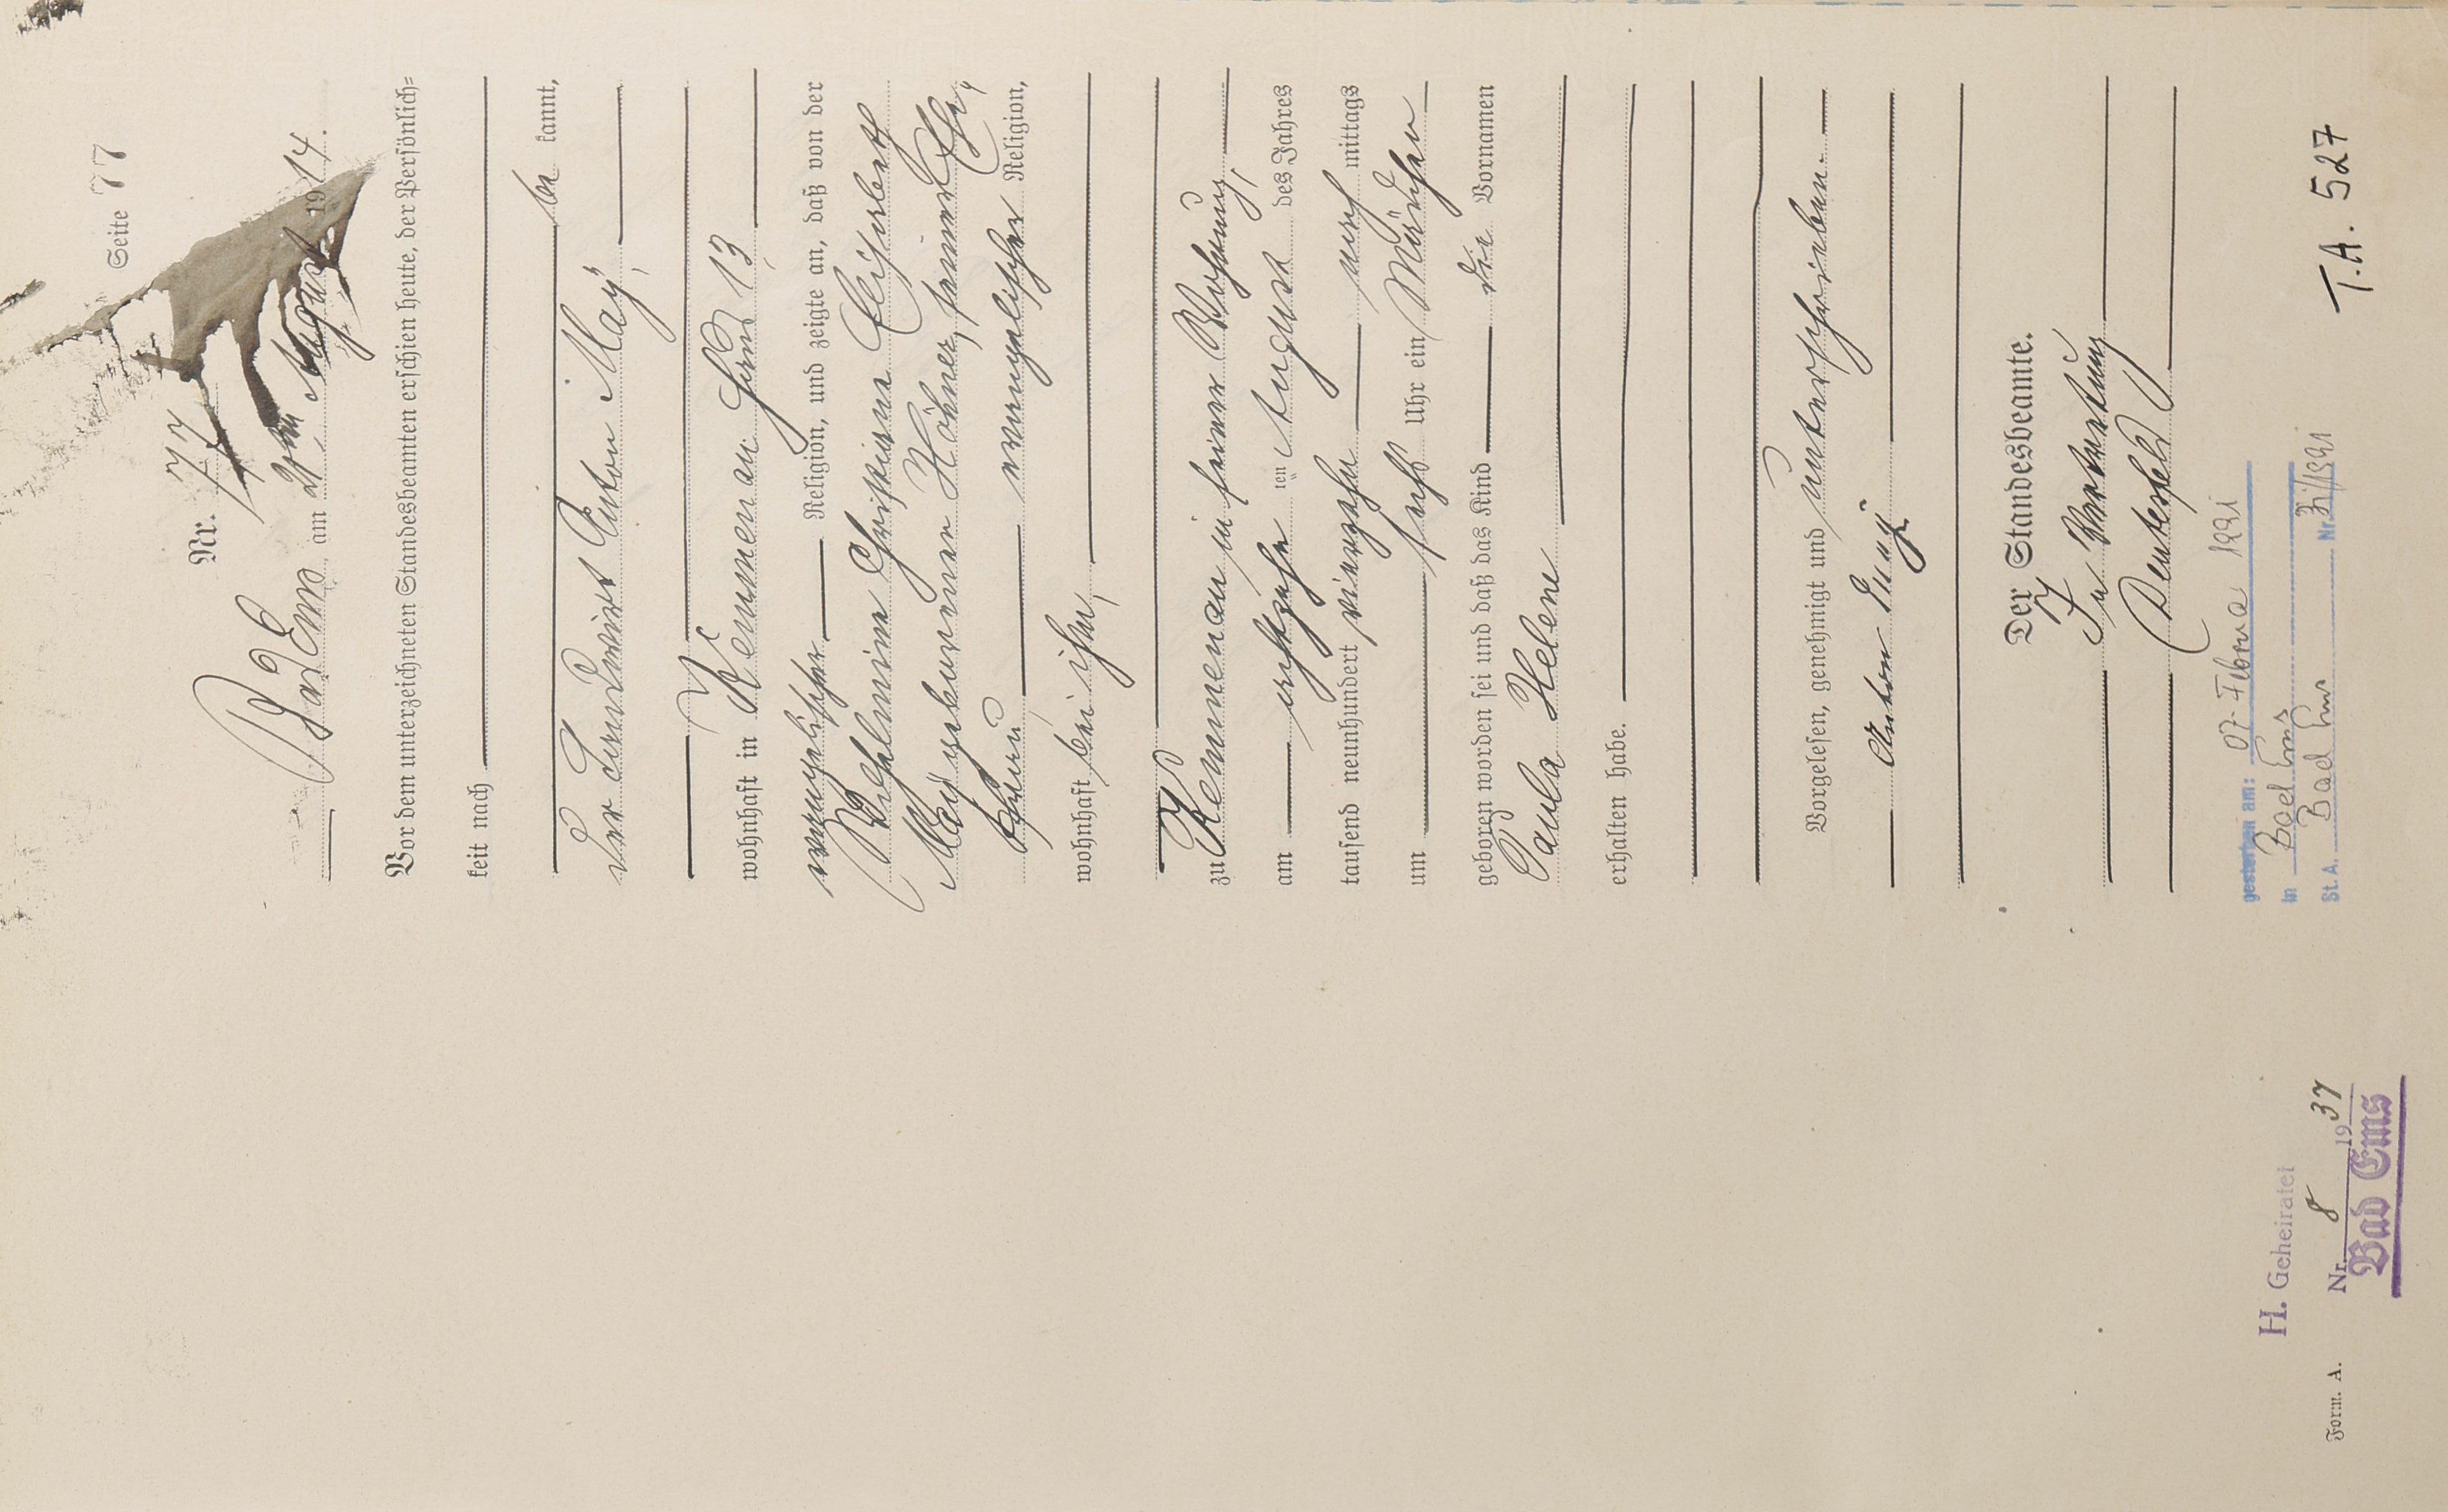 Seite 77
Nr. 77
Bad Ems am 21ten August 1914.
Vor dem unterzeichneten Standesbeamten erschien heute, der Persönlich=
keit nach
be kannt,
der Landwirt Anton May,
wohnhaft in Kemmenau Haus 13,
evangelischer Religion, und zeigte an, daß von der
Wilhelmine Christiane Elisabeth
May geborenen Höhner, seiner Ehe,
frau evangelischer Religion,
wohnhaft bei ihm,
zu Kemmenau in seiner Wohnung,
am achtzehn ten August des Jahres
tausend neunhundert vierzehn nach mittags
um sechs Uhr ein Mädchen
geboren worden sei und daß das Kind die Vornamen
Paula Helene
erhalten habe.
Vorgelesen, genehmigt und unterschrieben.
Anton May
Der Standesbeamte.
In Vertretung
gestorben am: 07. Februa 1991
in Bad Ems
St. A. Bad Ems Nr. 31/1991
T.A. 527
H. Geheiratet
Form. A. Nr. 8 1937
Bad Ems